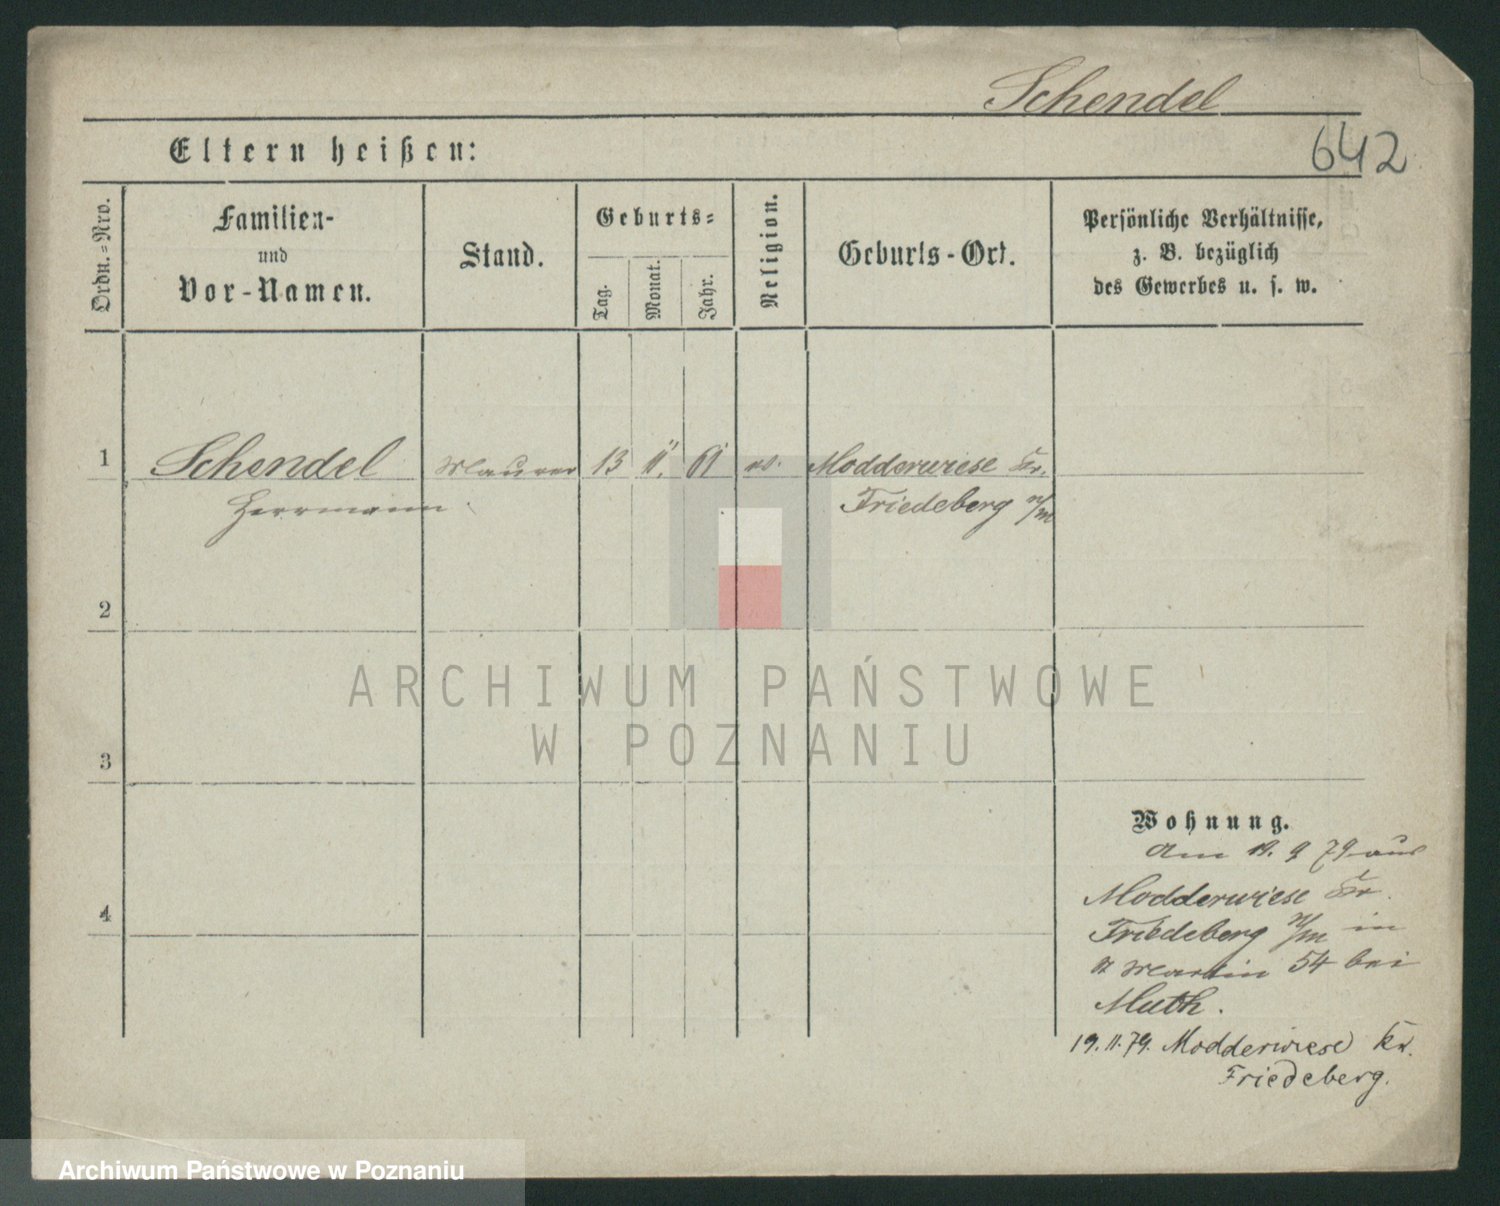 Schendel
642
Eltern heißen:
Ordn.=Nro.
Familien-
und
Vor-Namen.
Stand.
Geburts=
Tag.
Monat.
Jahr.
Religion.
Geburts-Ort.
Persönliche Verhältnisse,
z. B. bezüglich
des Gewerbes u. s. w.
1
Schendel Maurer 13 11. 61 ev. Modderwiese Kr.
Herrmann Friedeberg n/m
2
ARCHIWUM PAŃSTWOWE
W POZNANIU
3
Wohnung.
Am 19. 9 79 aus
Modderwiese Kr.
4
Friedeberg n/m in
St Martin 54 bei
Muth.
19.11.79. Modderwiese Kr.
Friedeberg.
Archiwum Państwowe w Poznaniu